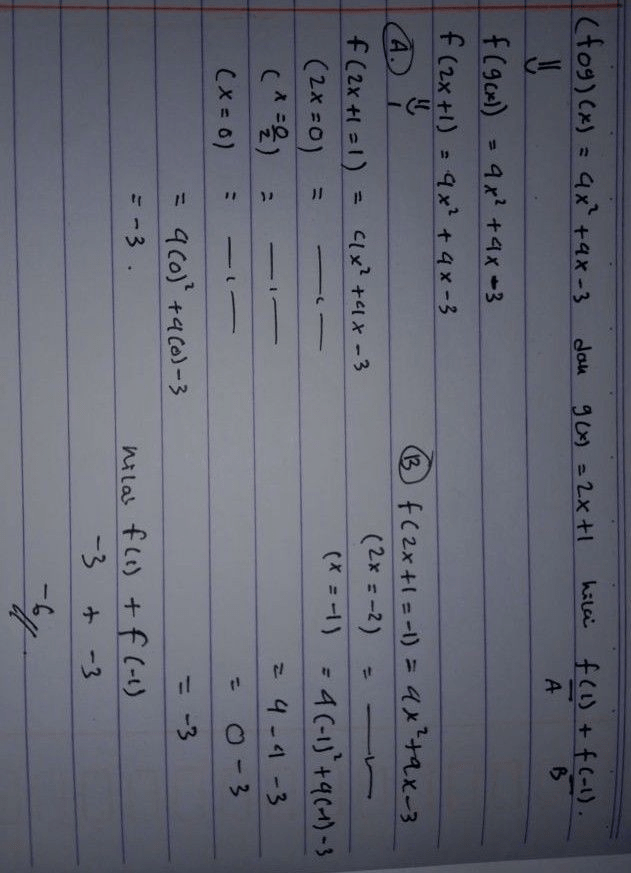 (fog)(x) = 4x² + 4x - 3 dan g(x) = 2x+1 nilai f(1) + f(-1).
A B
⇓
f(g(x)) = 4x² + 4x - 3
f(2x+1) = 4x² + 4x - 3
A. ⇓
f(2x+1=1) = 4x² + 4x - 3
(2x = 0) = —〃—
(x = 0/2) = —〃—
(x = 0) = —〃—
= 4(0)² + 4(0) - 3
= -3.
B f(2x+1 = -1) = 4x² + 4x - 3
(2x = -2) = —〃—
(x = -1) = 4(-1)² + 4(-1) - 3
= 4 - 4 - 3
= 0 - 3
= -3
nilai f(1) + f(-1)
-3 + -3
-6 //.